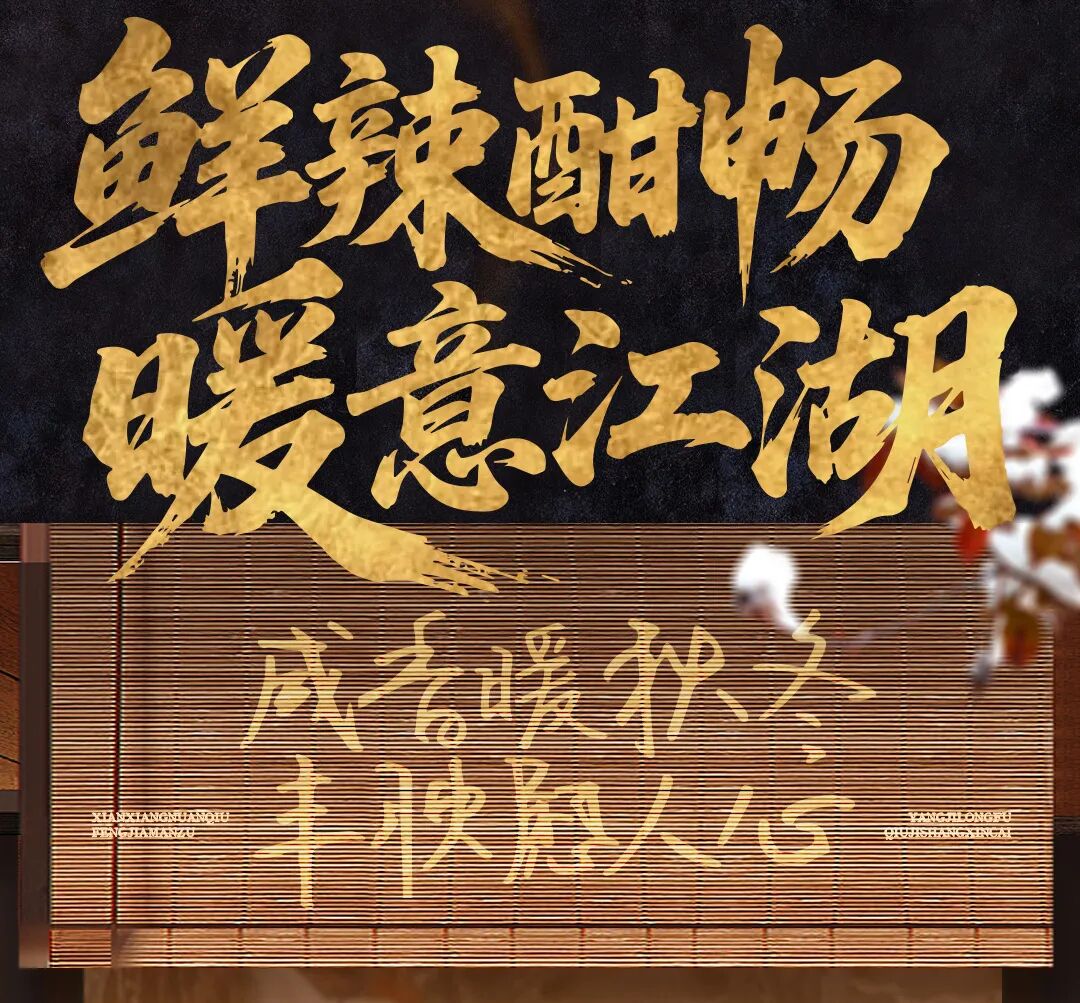 鲜辣酣畅
暖意江湖
咸香暖秋冬
丰腴慰人心
XIANXIANGNUANQIU
FENGJIAMANZU
YANGJILONGFU
QIUJISHANGXINCAI